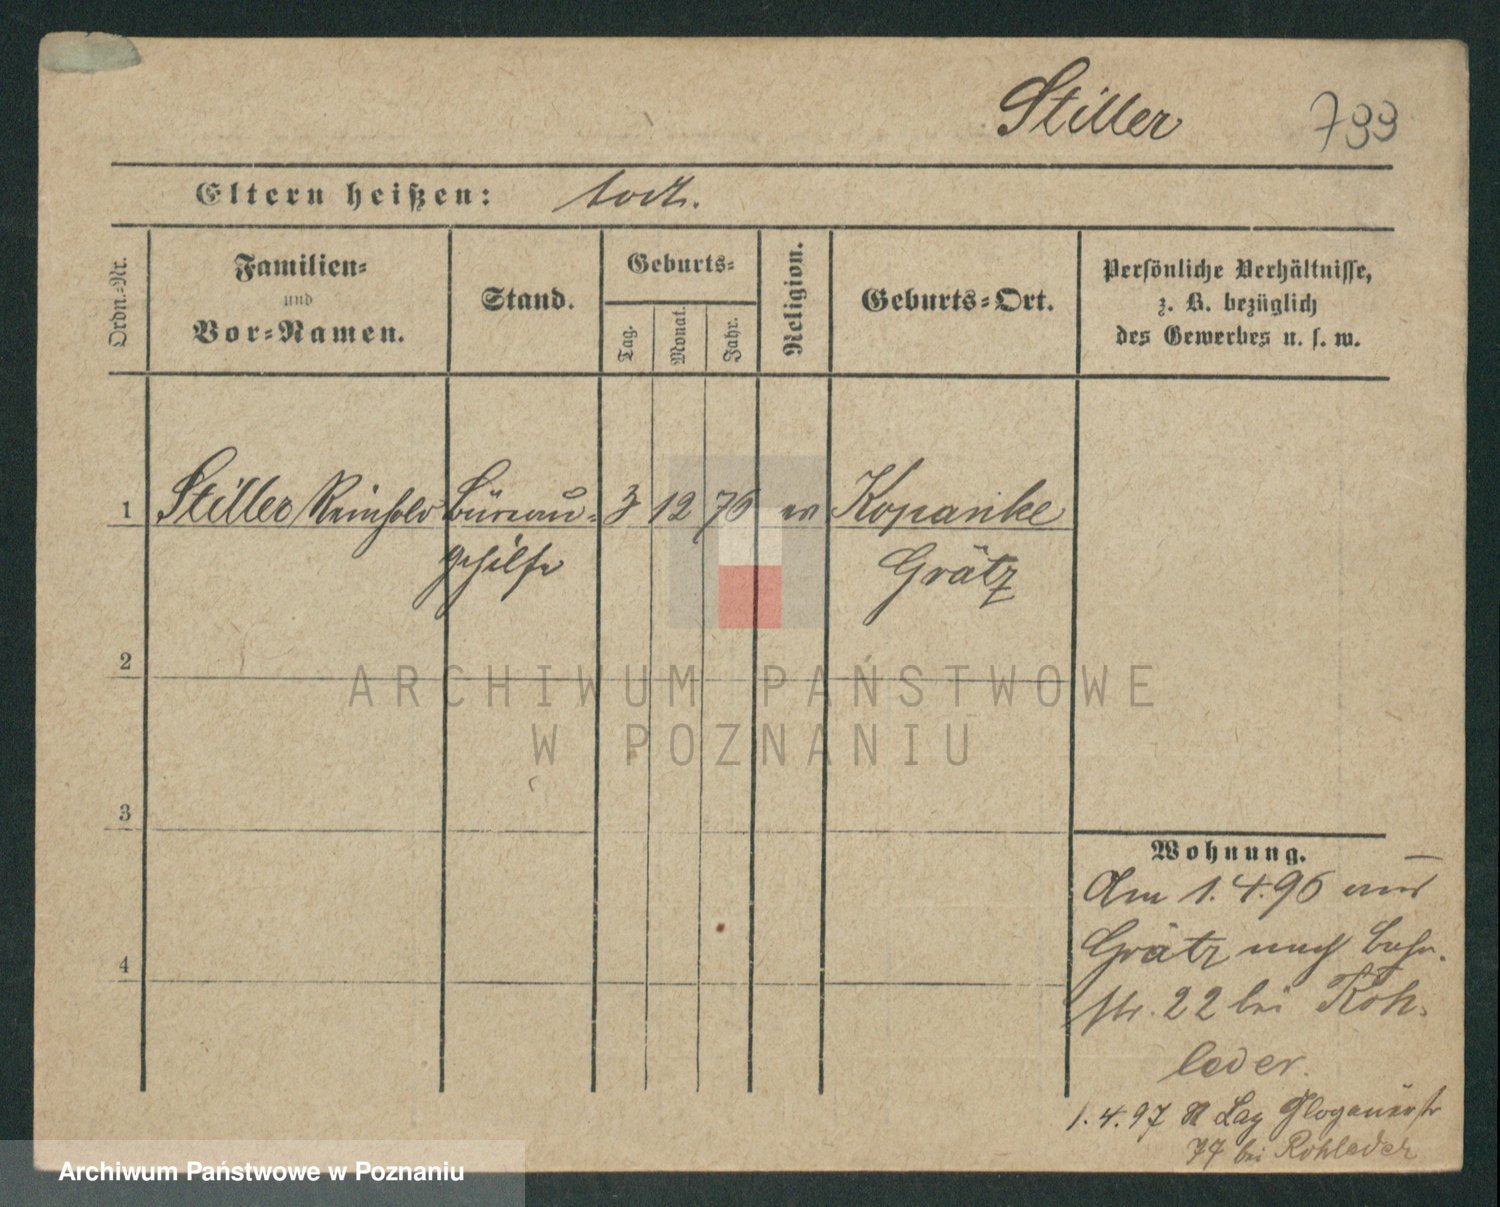 Stiller 799
Eltern heißen: todt.
Ordn.-Nr.
Familien-
und
Vor-Namen.
Stand.
Geburts-
Tag.
Monat.
Jahr.
Religion.
Geburts-Ort.
Persönliche Verhältnisse,
z. B. bezüglich
des Gewerbes u. s. w.
1 Stiller Reinhold Büreau- 3 12 76 ev Kopanke
gehilfe Grätz
2
ARCHIWUM PAŃSTWOWE
W POZNANIU
3
Wohnung.
Am 1.4.96 aus
Grätz nach Bahn.
4
str. 22 bei Roh-
leder.
1.4.97 Glogauerstr
77 bei Rohleder
Archiwum Państwowe w Poznaniu